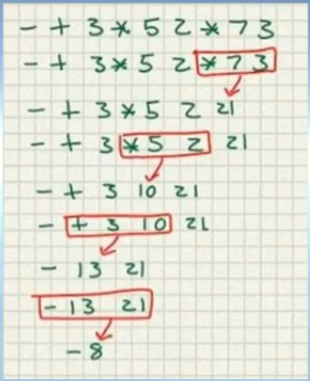 - + 3 * 5 2 * 7 3
- + 3 * 5 2 * 7 3
- + 3 * 5 2 21
- + 3 * 5 2 21
- + 3 10 21
- + 3 10 21
- 13 21
- 13 21
- 8